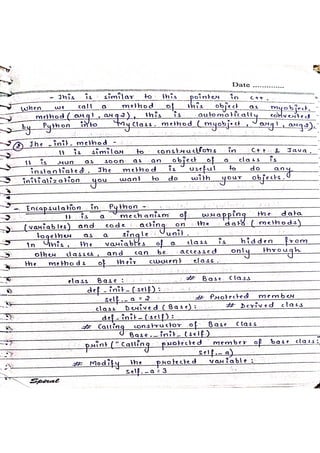 Date ..............
- This is similar to this pointer in C++.
When we call a method of this object as myobject.
method (arg1, arg2), this is automatically converted
by Python into MyClass. method (myobject, arg1, arg2).
② The _init_ method -
It is similar to constructors in C++ & Java.
It is run as soon as an object of a class is
instantiated. The method is useful to do any
initialization you want to do with your objects.
- Encapsulation in Python -
It is a mechanism of wrapping the data
(variables) and code acting on the data (methods)
together as a single unit.
In this, the variables of a class is hidden from
other classes, and can be accessed only through
the methods of their current class.
class Base : # Base Class
def _init_(self):
self._a = 2 # Protected member
class Derived (Base): # Derived class
def _init_(self):
# Calling constructor of Base Class
Base._init_(self)
print ("Calling protected member of base class:
self._a)
# Modify the protected variable :
self._a = 3
Spiral